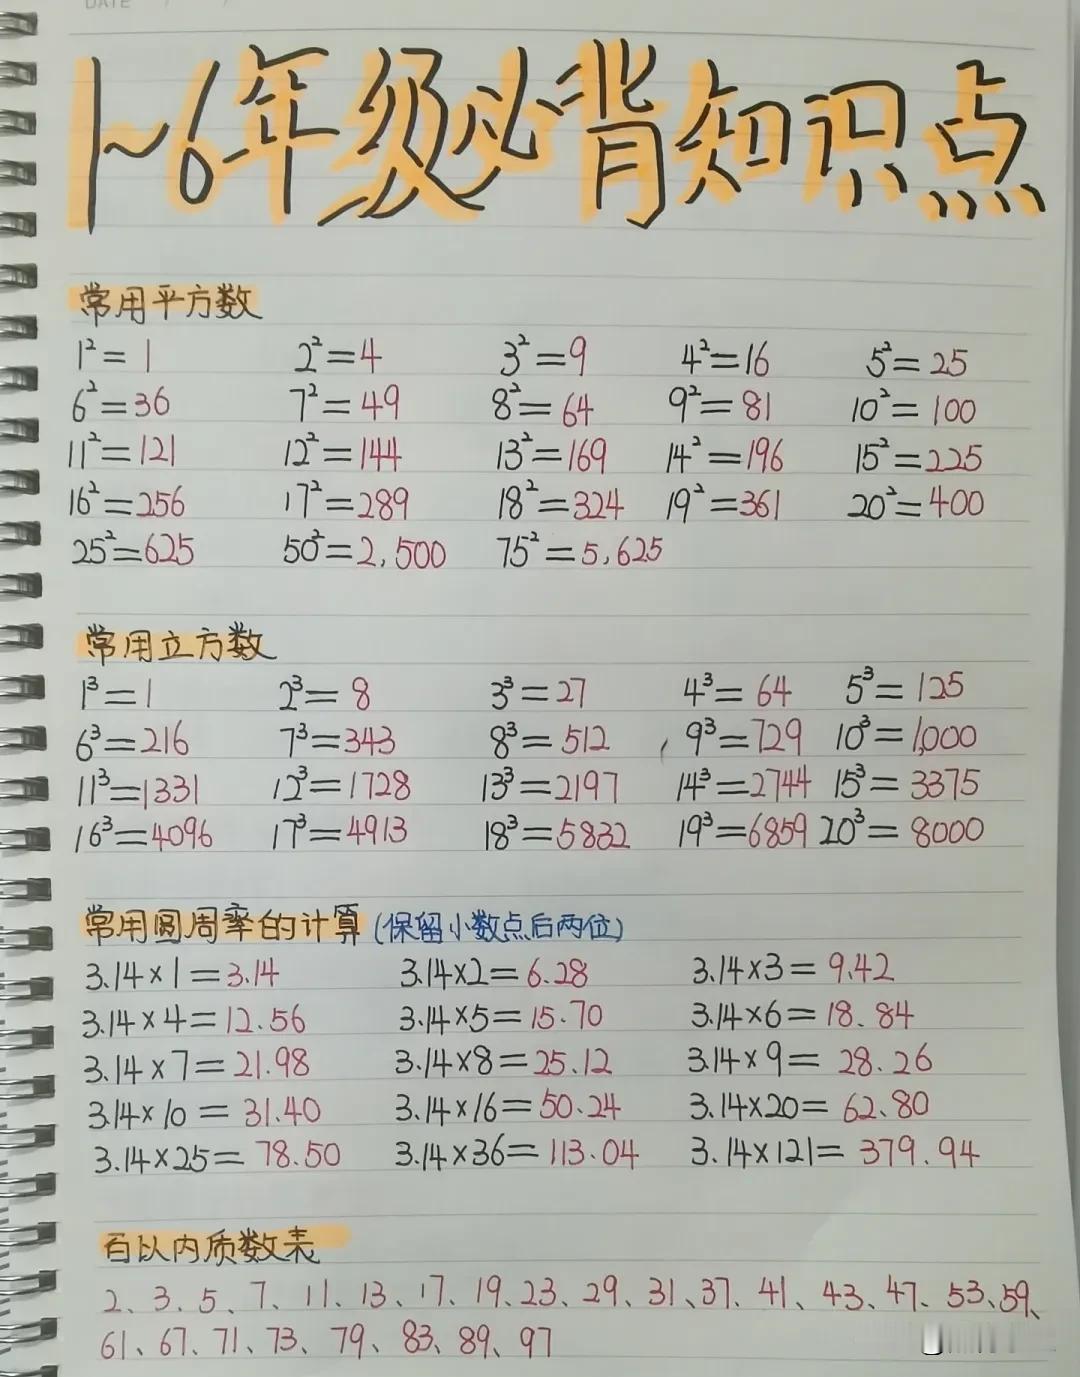 DATE / /
1~6年级必背知识点
常用平方数
1²=1 2²=4 3²=9 4²=16 5²=25
6²=36 7²=49 8²=64 9²=81 10²=100
11²=121 12²=144 13²=169 14²=196 15²=225
16²=256 17²=289 18²=324 19²=361 20²=400
25²=625 50²=2,500 75²=5,625
常用立方数
1³=1 2³=8 3³=27 4³=64 5³=125
6³=216 7³=343 8³=512 9³=729 10³=1,000
11³=1331 12³=1728 13³=2197 14³=2744 15³=3375
16³=4096 17³=4913 18³=5832 19³=6859 20³=8000
常用圆周率的计算(保留小数点后两位)
3.14×1=3.14 3.14×2=6.28 3.14×3=9.42
3.14×4=12.56 3.14×5=15.70 3.14×6=18.84
3.14×7=21.98 3.14×8=25.12 3.14×9=28.26
3.14×10=31.40 3.14×16=50.24 3.14×20=62.80
3.14×25=78.50 3.14×36=113.04 3.14×121=379.94
百以内质数表
2、3、5、7、11、13、17、19、23、29、31、37、41、43、47、53、59、
61、67、71、73、79、83、89、97